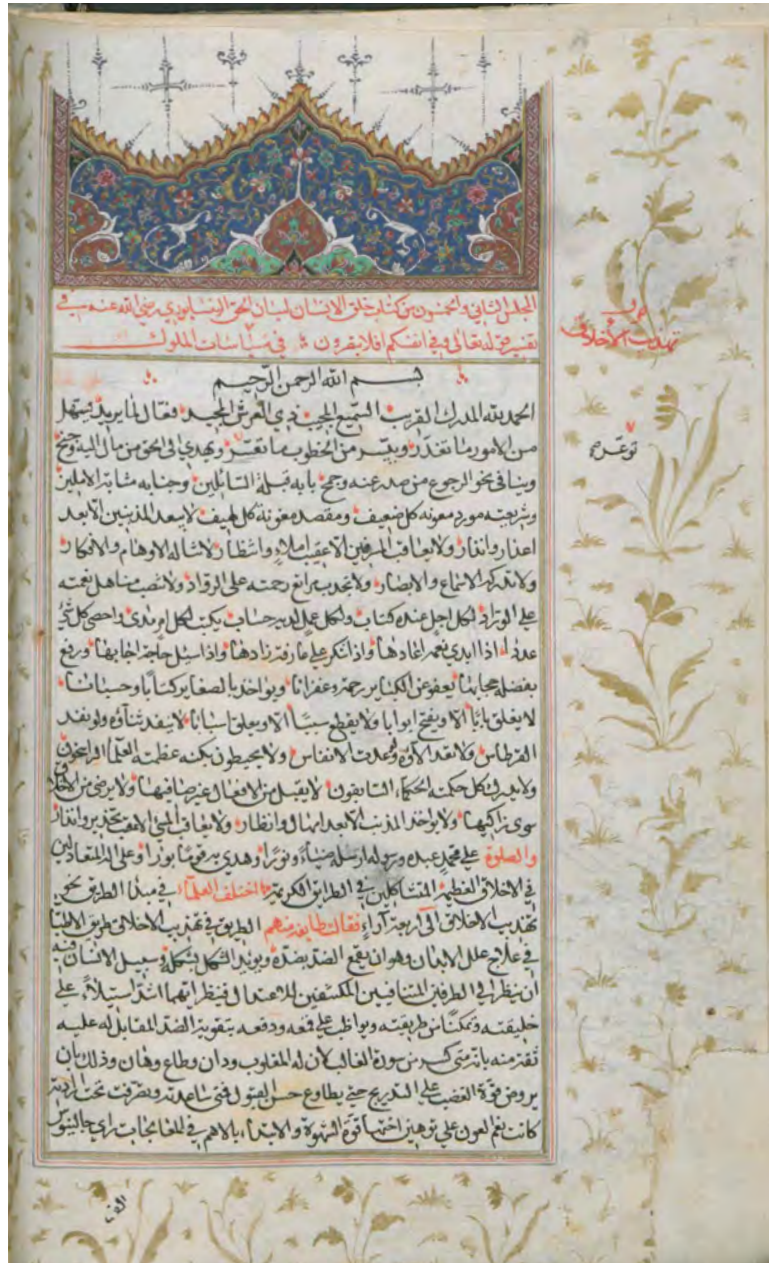 المجلس الثاني والخمسون من كتاب خلق الانسان لبيان الحق النيسابوري رضي الله عنه في
تفسير قوله تعالى وفي انفسكم افلا تبصرون في سياسات الملوك
بسم الله الرحمن الرحيم
الحمد لله المدرك القريب السميع المجيب ذي العرش المجيد فعال لما يريد يسهل
من الامور ما تعذر وييسر من الخطوب ما تعسر ويهدي الى الحق من مال اليه وجنح
وينافي نحو الرجوع من صد عنه وجمح بابه قبلة السائلين وجنابه مثابة الآملين
وشريعته مورد معونه كل ضعيف ومقصد معونة كل لهيف لا يبعد المذنبين الا بعد
اعذار وانذار ولا يعاقب المسرفين الا عقيب املاء وانتظار لا تناله الاوهام والافكار
ولا تدركه الاسماع والابصار ولا تجدب مراتع رحمته على الرواد ولا تنضب مناهل نعمته
على الوراد لكل اجل عنده كتاب ولكل عمل لديه حساب يكتب لكل امر مدى واحصى كل شئ
عددا اذا ابدى نعمة اعادها واذا شكر على عارفة زادها واذا سئل حاجة اجابها ورفع
بفضله حجابها يعفو عن الكباير رحمة وغفرانا ويواخذ بالصغاير كتابا وحسبانا
لا يغلق بابا الا ويفتح ابوابا ولا يقطع سببا الا ويعلق اسبابا لا ينفد ثناؤه ولو نفد
القرطاس ولا تعد آلاؤه ولو عدت الانفاس ولا يحيطون بكنه عظمته العلماء الراسخون
ولا يدرك كل حكمته الحكماء السابقون لا يقبل من الافعال غير صافيها ولا يرضى من الاخلاق
سوى زاكيها ولا يواخذ المذنب الا بعد امهال وانظار ولا يعاقب المسئ الا بعد تحذير وانذار
والصلوة على محمد عبده ورسوله ارسله ضياء ونورا وهدى به قوما بورا وعلى اله المتعادلين
في الاخلاق العظيمة المتشاكلين في الطرايق الكريمة اختلف العلماء في مبدا الطريق نحو
تهذيب الاخلاق الى اربعة آراء فقالت طايفة منهم الطريق في تهذيب الاخلاق طريق الاطباء
في علاج علل الابدان وهو ان يقمع الضد بضده ويويد الشكل بشكله وسبيل الانسان فيه
ان ينظر الى الطرفين المتنافيين المكتنفين للاعتدال فينظر ايهما اشد استيلاء على
خليقته وتمكنا من طريقته ويواظب على قمعه ودفعه بتقوية الضد المقابل له عليه
ثقة منه بانه متى كسر من سورة الغالب لان له المغلوب ودان وطاع وهان وذلك بان
يروض قوة الغضب على التدريج حتى يطاوع حسن القبول فمتى ساعدته وتصرفت تحت ارادته
كانت نعم العون على توهين اختها قوة الشهوة والابتداء بالاهم في المعالجات راي جالينوس
تهذيب الاخلاق
توعر